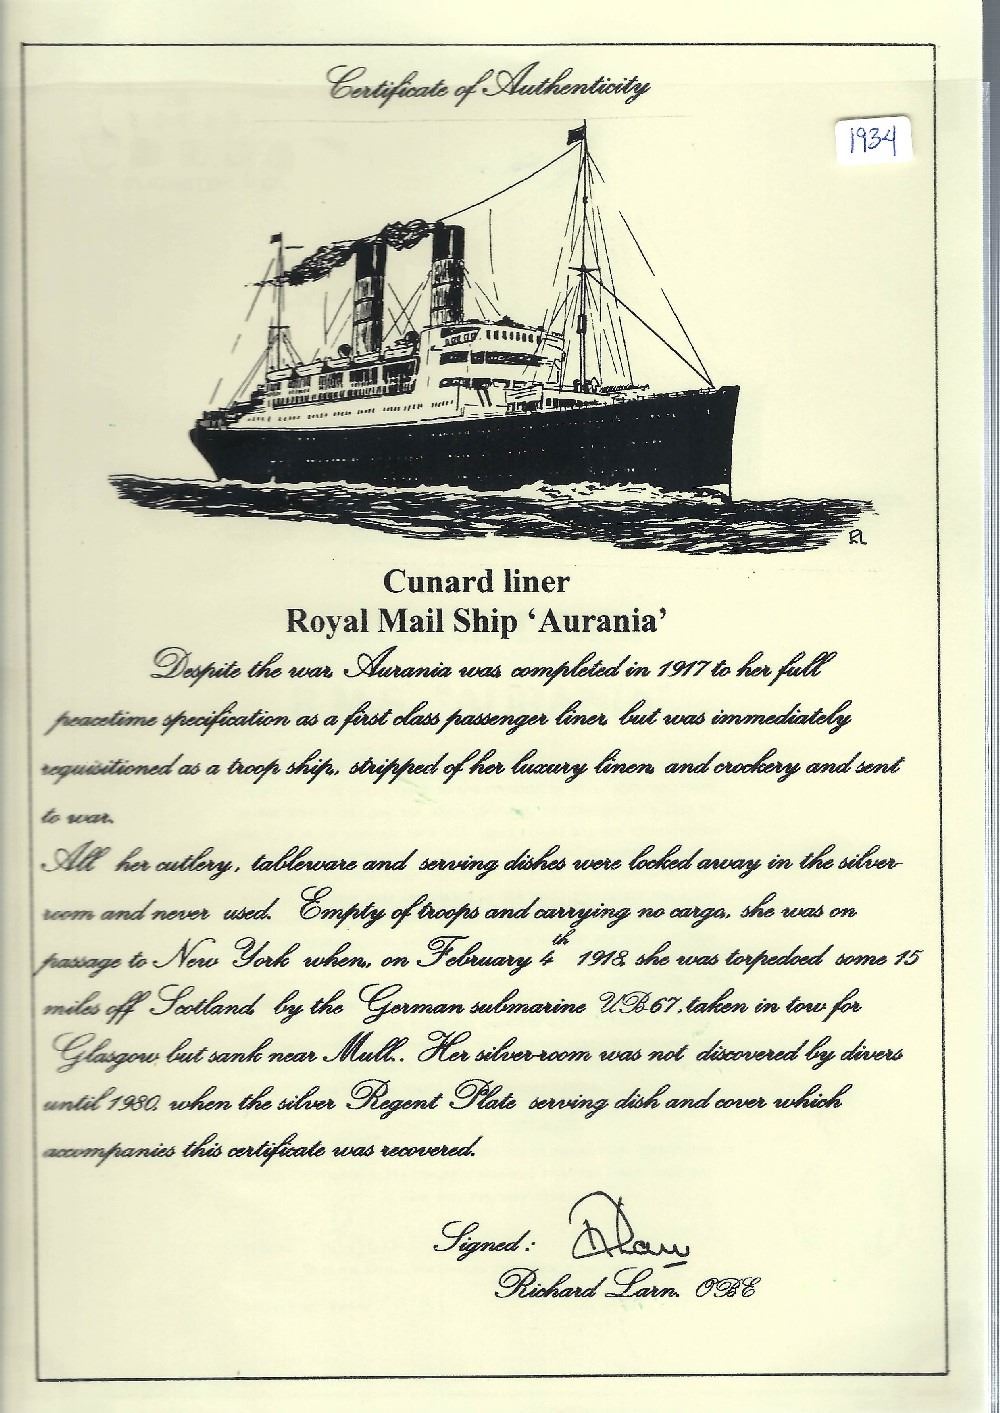 Certificate of Authenticity
1934
RL
Cunard liner
Royal Mail Ship ‘Aurania’
Despite the war, Aurania was completed in 1917 to her full
peacetime specification as a first class passenger liner, but was immediately
requisitioned as a troop ship, stripped of her luxury linen, and crockery and sent
to war.
All her cutlery, tableware and serving dishes were locked away in the silver-
room and never used. Empty of troops and carrying no cargo, she was on
passage to New York when, on February 4th 1918, she was torpedoed some 15
miles off Scotland by the German submarine UB67, taken in tow for
Glasgow but sank near Mull.. Her silver-room was not discovered by divers
until 1980, when the silver Regent Plate serving dish and cover which
accompanies this certificate was recovered.
Signed:
Richard Larn. OBE